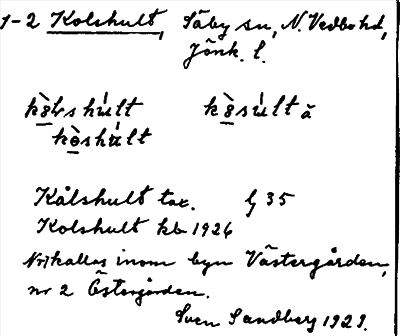 1-2 Kolshult, Säby sn, N. Vedbo hd,
Jönk. l.
kȯlshult kȯsult ă
kȯshult
Kålshult tax. G 35
Kolshult kb 1926
Nr 1 kallas inom byn Västergården,
nr 2 Östergården.
Sven Sandberg 1929.